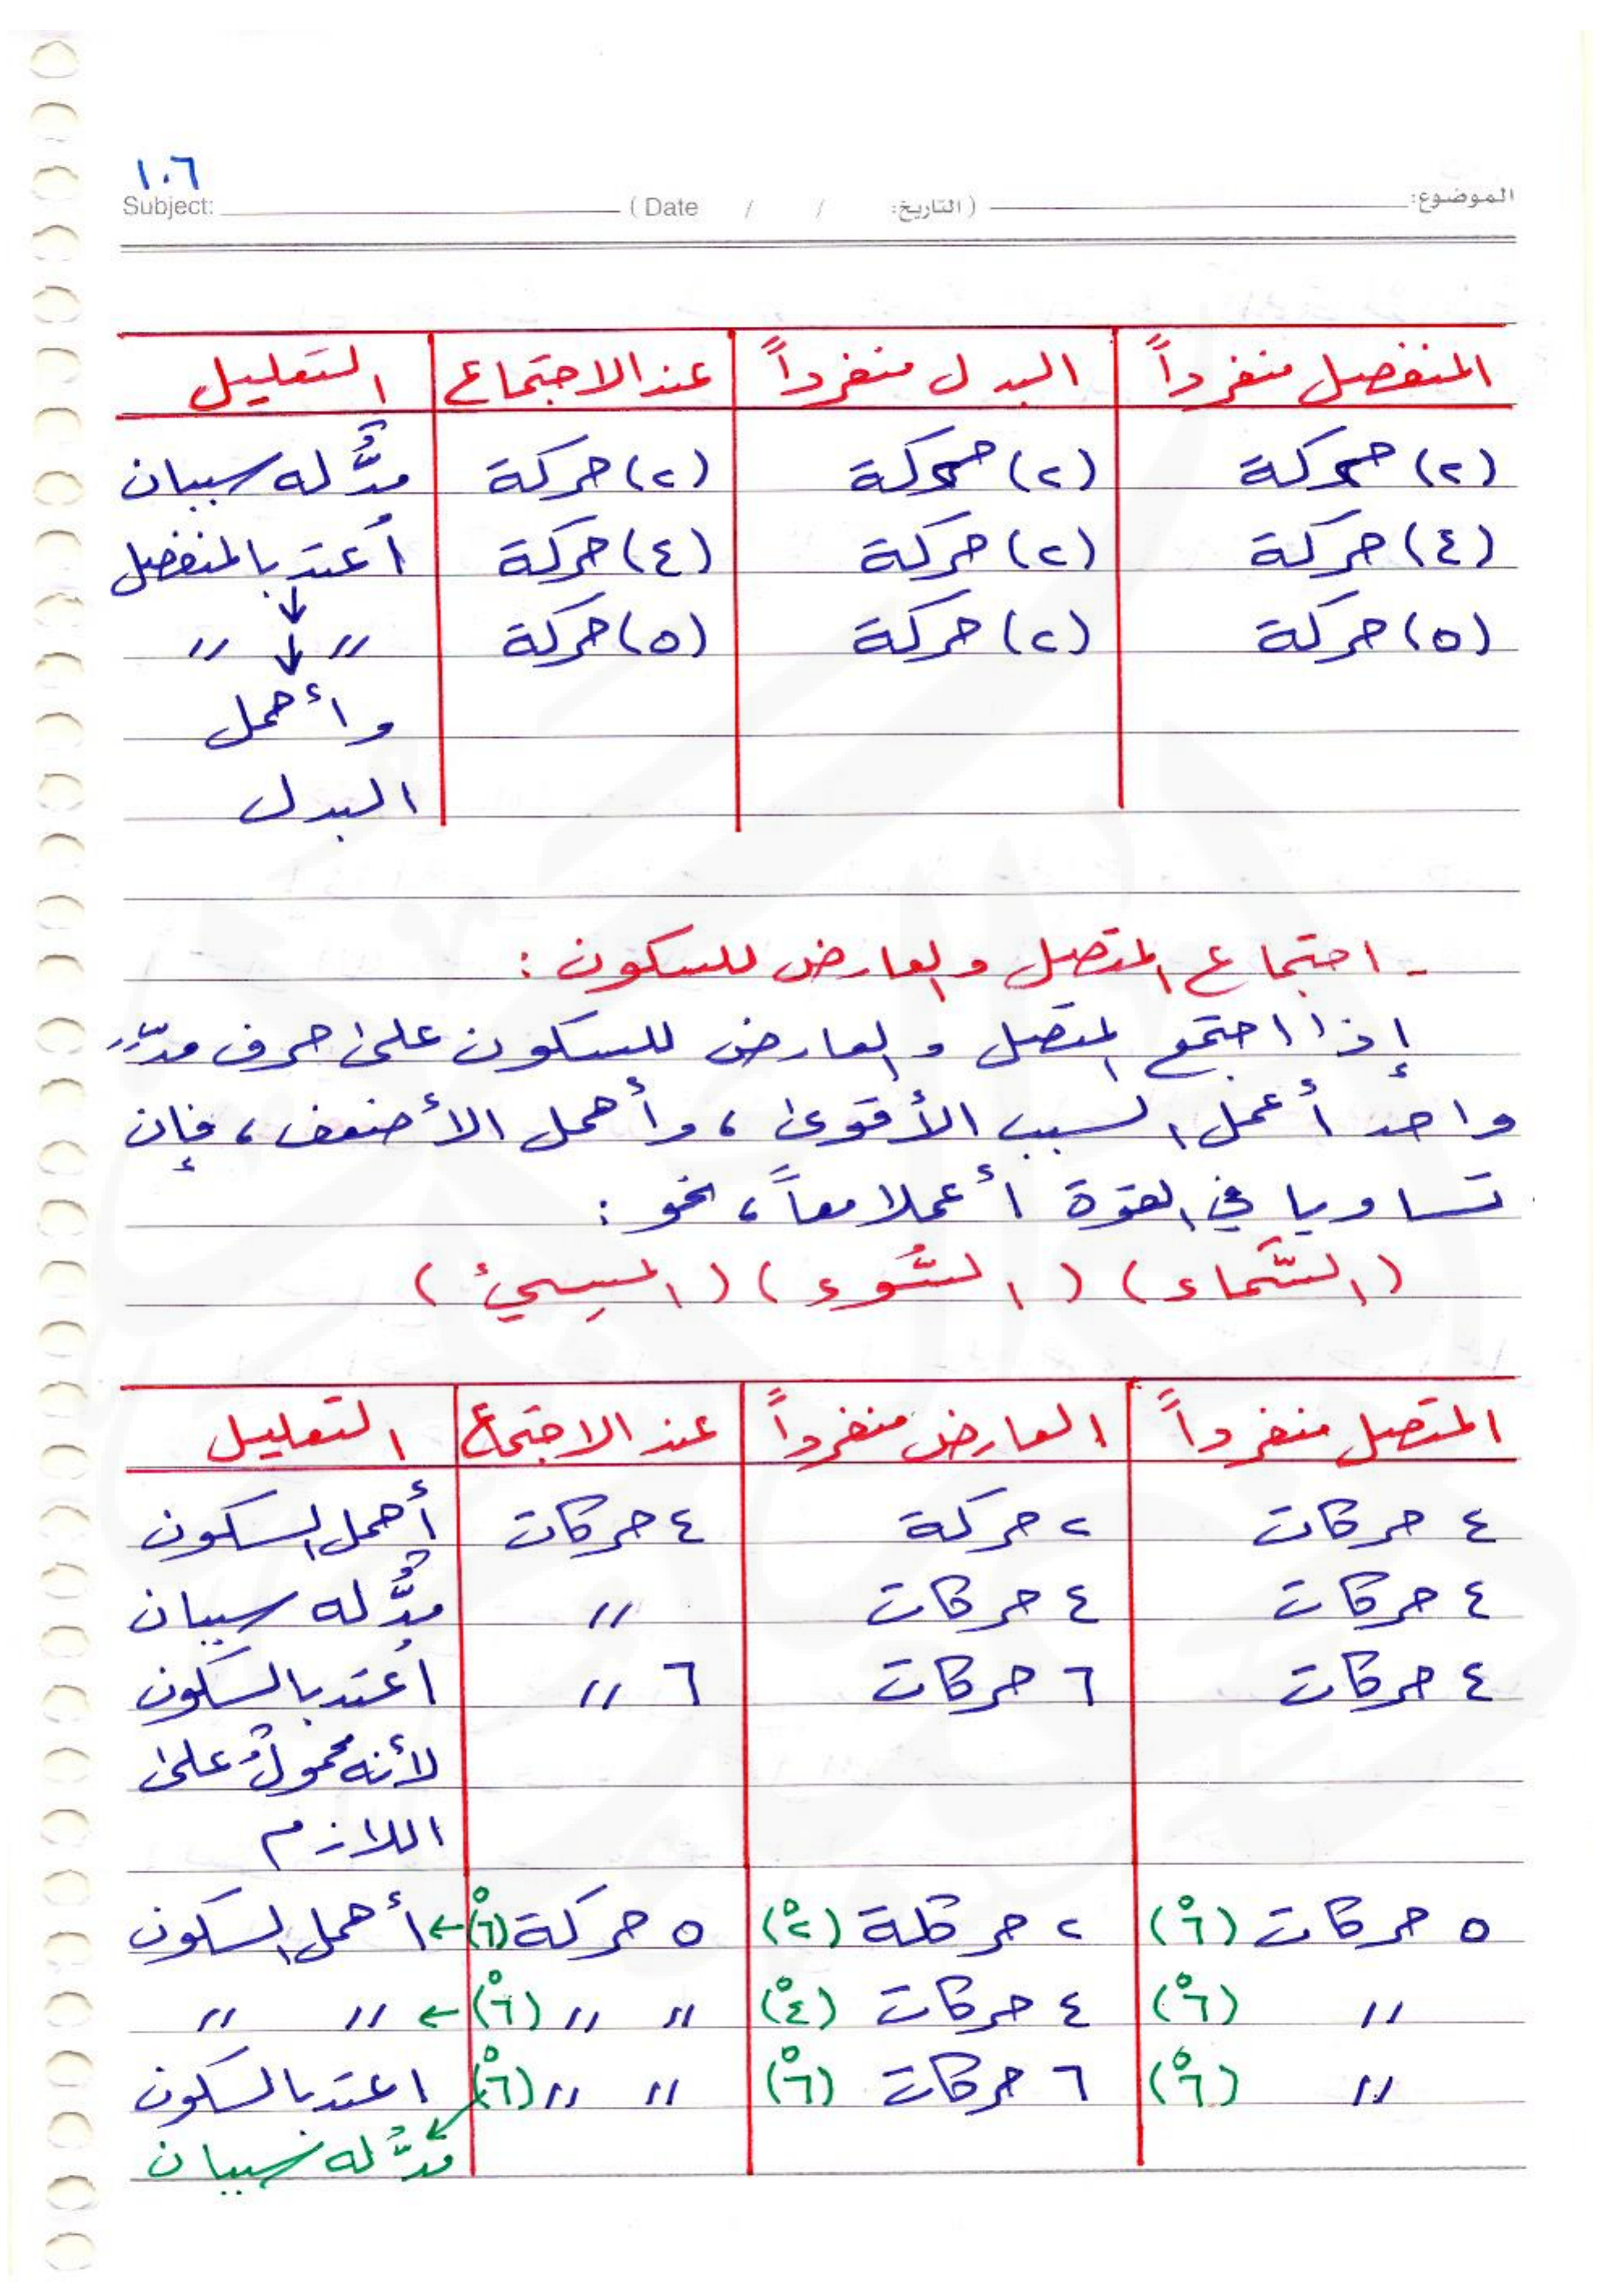 ١٠٦
Subject: ( Date / / التاريخ: ) الموضوع:
المنفصل منفرداً البدل منفرداً عند الاجتماع التعليل
(٢) حركة (٢) حركة (٢) حركة مدٌّ له سببان
(٤) حركة (٢) حركة (٤) حركة اُعتد بالمنفصل
↓
(٥) حركة (٢) حركة (٥) حركة // ↓ //
وأُهمل
البدل
- اجتماع المتصل والعارض للسكون :
إذا اجتمع المتصل والعارض للسكون على حرف مدٍّ
واحد أُعمل السبب الأقوى ، وأُهمل الأضعف ، فإن
تساويا في القوة أُعملا معاً ، نحو :
(السَّماء) (السُّوء) (المسِيءُ)
المتصل منفرداً العارض منفرداً عند الاجتماع التعليل
٤ حركات ٢ حركة ٤ حركات أُهمل السكون
٤ حركات ٤ حركات // مدٌّ له سببان
٤ حركات ٦ حركات ٦ // اُعتد بالسكون
لأنه محمولٌ على
اللازم
٥ حركات (٦ْ) ٢ حركة (٢ْ) ٥ حركة (٦ْ) ← أُهمل السكون
// (٦ْ) ٤ حركات (٤ْ) // // (٦ْ) ← // //
// (٦ْ) ٦ حركات (٦ْ) // // (٦ْ) اعتد بالسكون
مدٌّ له سببان